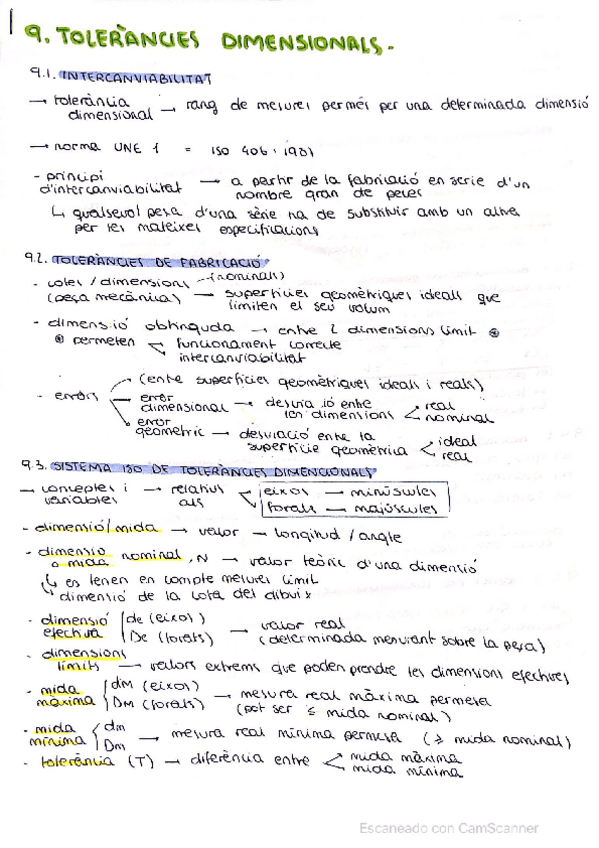 9. TOLERÀNCIES DIMENSIONALS.
9.1. INTERCANVIABILITAT
→ tolerància dimensional → rang de mesures permès per una determinada dimensió
→ norma UNE 1 = ISO 406:1987
- principi d'intercanviabilitat → a partir de la fabricació en serie d'un nombre gran de peces
↳ qualsevol peça d'una sèrie ha de substituir amb un altra
per les mateixes especificacions
9.2. TOLERÀNCIES DE FABRICACIÓ
- cotes / dimensions (nominals)
(peça mecànica) → superfícies geomètriques ideals que
limiten el seu volum
- dimensió obtinguda → entre 2 dimensions límit ⊛
⊛ permeten funcionament correcte
intercanviabilitat
- errors (entre superfícies geomètriques ideals i reals)
error dimensional → desviació entre les dimensions real
nominal
error geomètric → desviació entre la superfície geomètrica ideal
real
9.3. SISTEMA ISO DE TOLERÀNCIES DIMENCIONALS
→ conceptes i variables → relatius als eixos → minúscules
forats → majúscules
- dimensió/mida → valor → longitud / angle
- dimensio o mida nominal, N → valor teòric d'una dimensió
↳ es tenen en compte mesures límit
↳ dimensió de la cota del dibuix
- dimensió efectiva de (eixos)
De (forats) → valor real
(determinada mesurant sobre la peça)
- dimensions límits → valors extrems que poden prendre les dimensions efectives
- mida màxima dM (eixos)
DM (forats) → mesura real màxima permesa
(pot ser ≤ mida nominal)
- mida mínima dm
Dm → mesura real mínima permesa (≥ mida nominal)
- tolerància (T) → diferència entre mida màxima
mida mínima
Escaneado con CamScanner